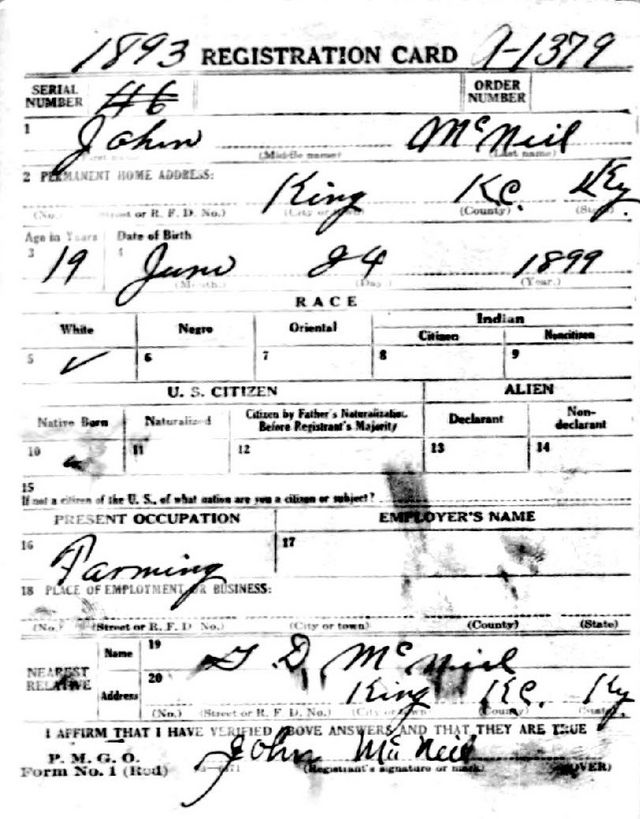 1893 REGISTRATION CARD A-1379
SERIAL NUMBER #6 ORDER NUMBER
1 John McNeil
(First name) (Middle name) (Last name)
2 PERMANENT HOME ADDRESS:
King K.C. Ky.
(No.) (Street or R. F. D. No.) (City or town) (County) (State)
Age in Years Date of Birth
3 19 4 June 24 1899
(Month.) (Day.) (Year.)
RACE
White Negro Oriental Indian
Citizen Noncitizen
5 ✓ 6 7 8 9
U. S. CITIZEN ALIEN
Native Born Naturalized Citizen by Father's Naturalization Before Registrant's Majority Declarant Non-declarant
10 11 12 13 14
15
If not a citizen of the U. S., of what nation are you a citizen or subject?
PRESENT OCCUPATION EMPLOYER'S NAME
16 Farming 17
18 PLACE OF EMPLOYMENT OR BUSINESS:
(No.) (Street or R. F. D. No.) (City or town) (County) (State)
NEAREST RELATIVE Name 19 G D. McNeil
Address 20 King K.C. Ky
(No.) (Street or R. F. D. No.) (City or town) (County) (State)
I AFFIRM THAT I HAVE VERIFIED ABOVE ANSWERS AND THAT THEY ARE TRUE
P. M. G. O.
Form No. 1 (Red) John McNeil
(Registrant's signature or mark) (OVER)